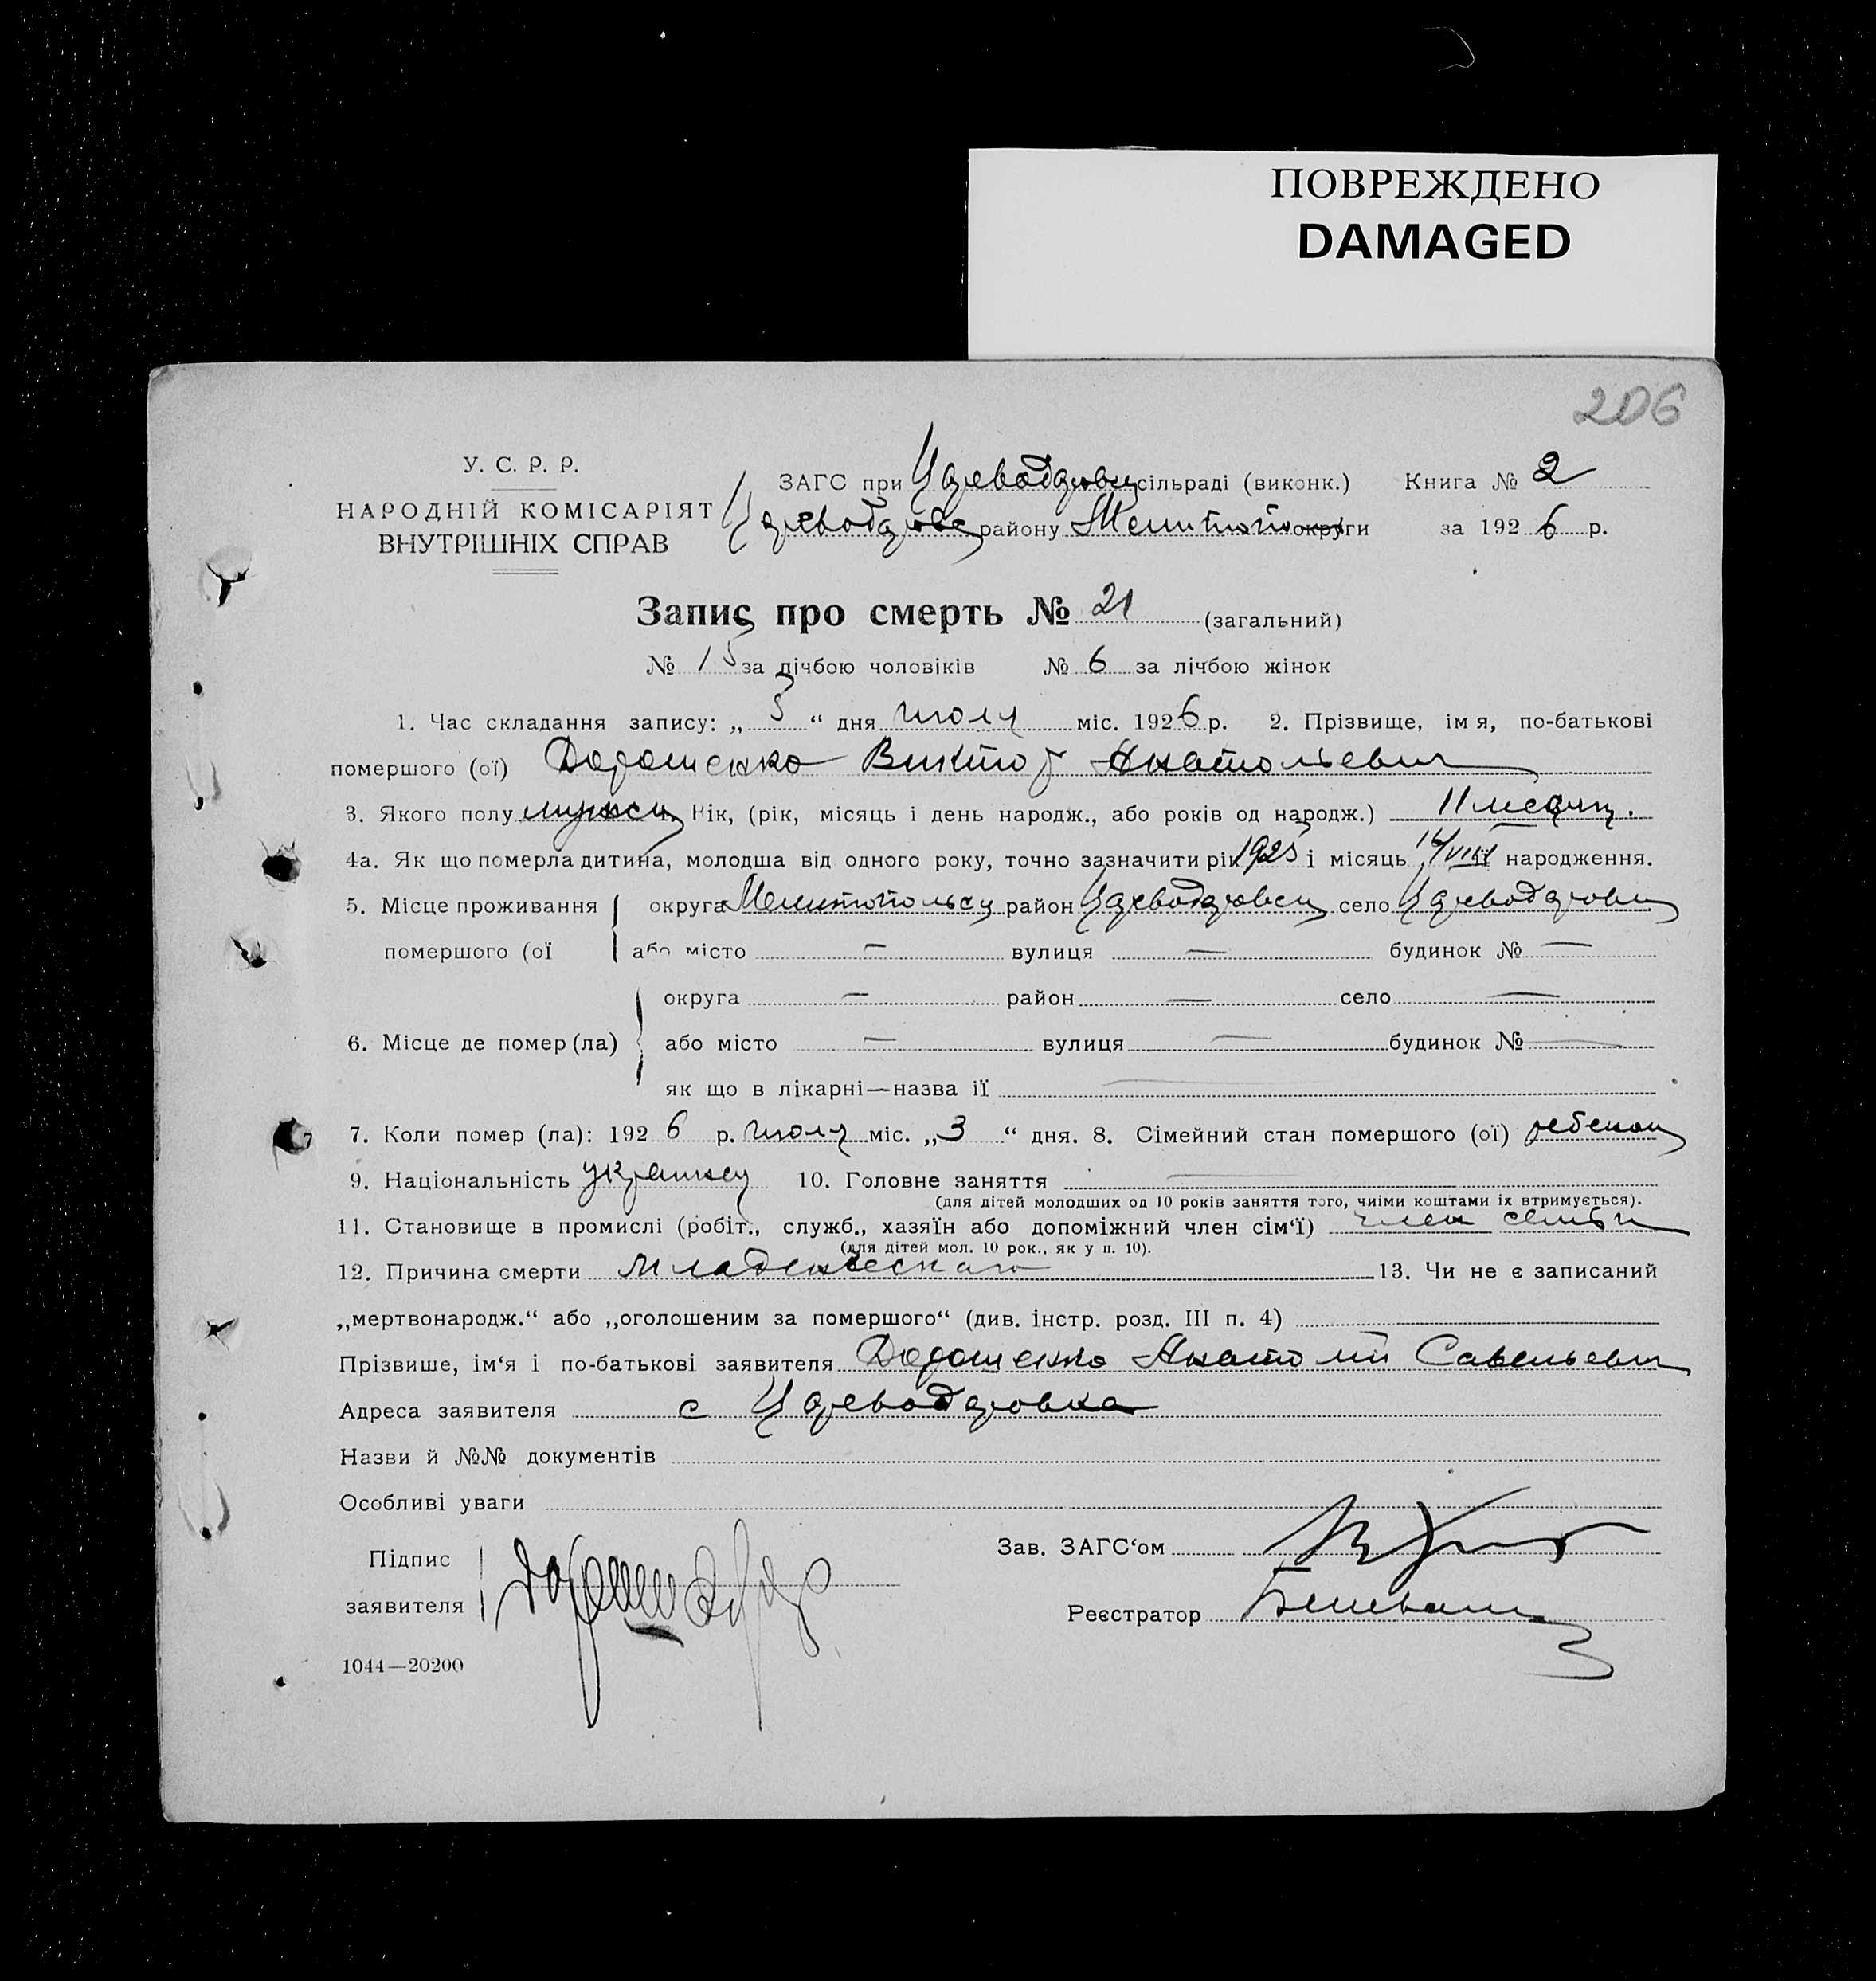 ПОВРЕЖДЕНО
DAMAGED
206
У. С. Р. Р.
НАРОДНІЙ КОМІСАРІЯТ
ВНУТРІШНІХ СПРАВ
ЗАГС при Цареводаровск сільраді (виконк.) Книга № 2
Цареводаровс району Мелитопо округи за 1926 р.
Запис про смерть № 21 (загальний)
№ 15 за лічбою чоловіків № 6 за лічбою жінок
1. Час складання запису: „ 5 “ дня июля міс. 1926 р. 2. Прізвище, імя, по-батькові
помершого (ої) Дорошенко Виктор Анатольевич
3. Якого полу мужск 4. Вік, (рік, місяць і день народж., або років од народж.) 11 месяц.
4а. Як що померла дитина, молодша від одного року, точно зазначити рік 1925 і місяць VIII народження.
5. Місце проживання округа Мелитопольск район Цареводаровск село Цареводаровк
помершого (ої або місто — вулиця — будинок № —
округа — район — село —
6. Місце де помер (ла) або місто — вулиця — будинок № —
як що в лікарні—назва її —
7. Коли помер (ла): 1926 р. июля міс. „3“ дня. 8. Сімейний стан помершого (ої) ребенок
9. Національність украинец 10. Головне заняття —
(для дітей молодших од 10 років заняття того, чиіми коштами їх втримується).
11. Становище в промислі (робіт., служб., хазяїн або допоміжний член сім‘ї) член семьи
(для дітей мол. 10 рок., як у п. 10).
12. Причина смерти Младенческая 13. Чи не є записаний
„мертвонародж.“ або „оголошеним за помершого“ (див. інстр. розд. III п. 4)
Прізвише, ім‘я і по-батькові заявителя Дорошенко Анатолий Савельевич
Адреса заявителя с Цареводаровка
Назви й №№ документів
Особливі уваги
Підпис
заявителя
Зав. ЗАГС‘ом
Реєстратор
1044—20200